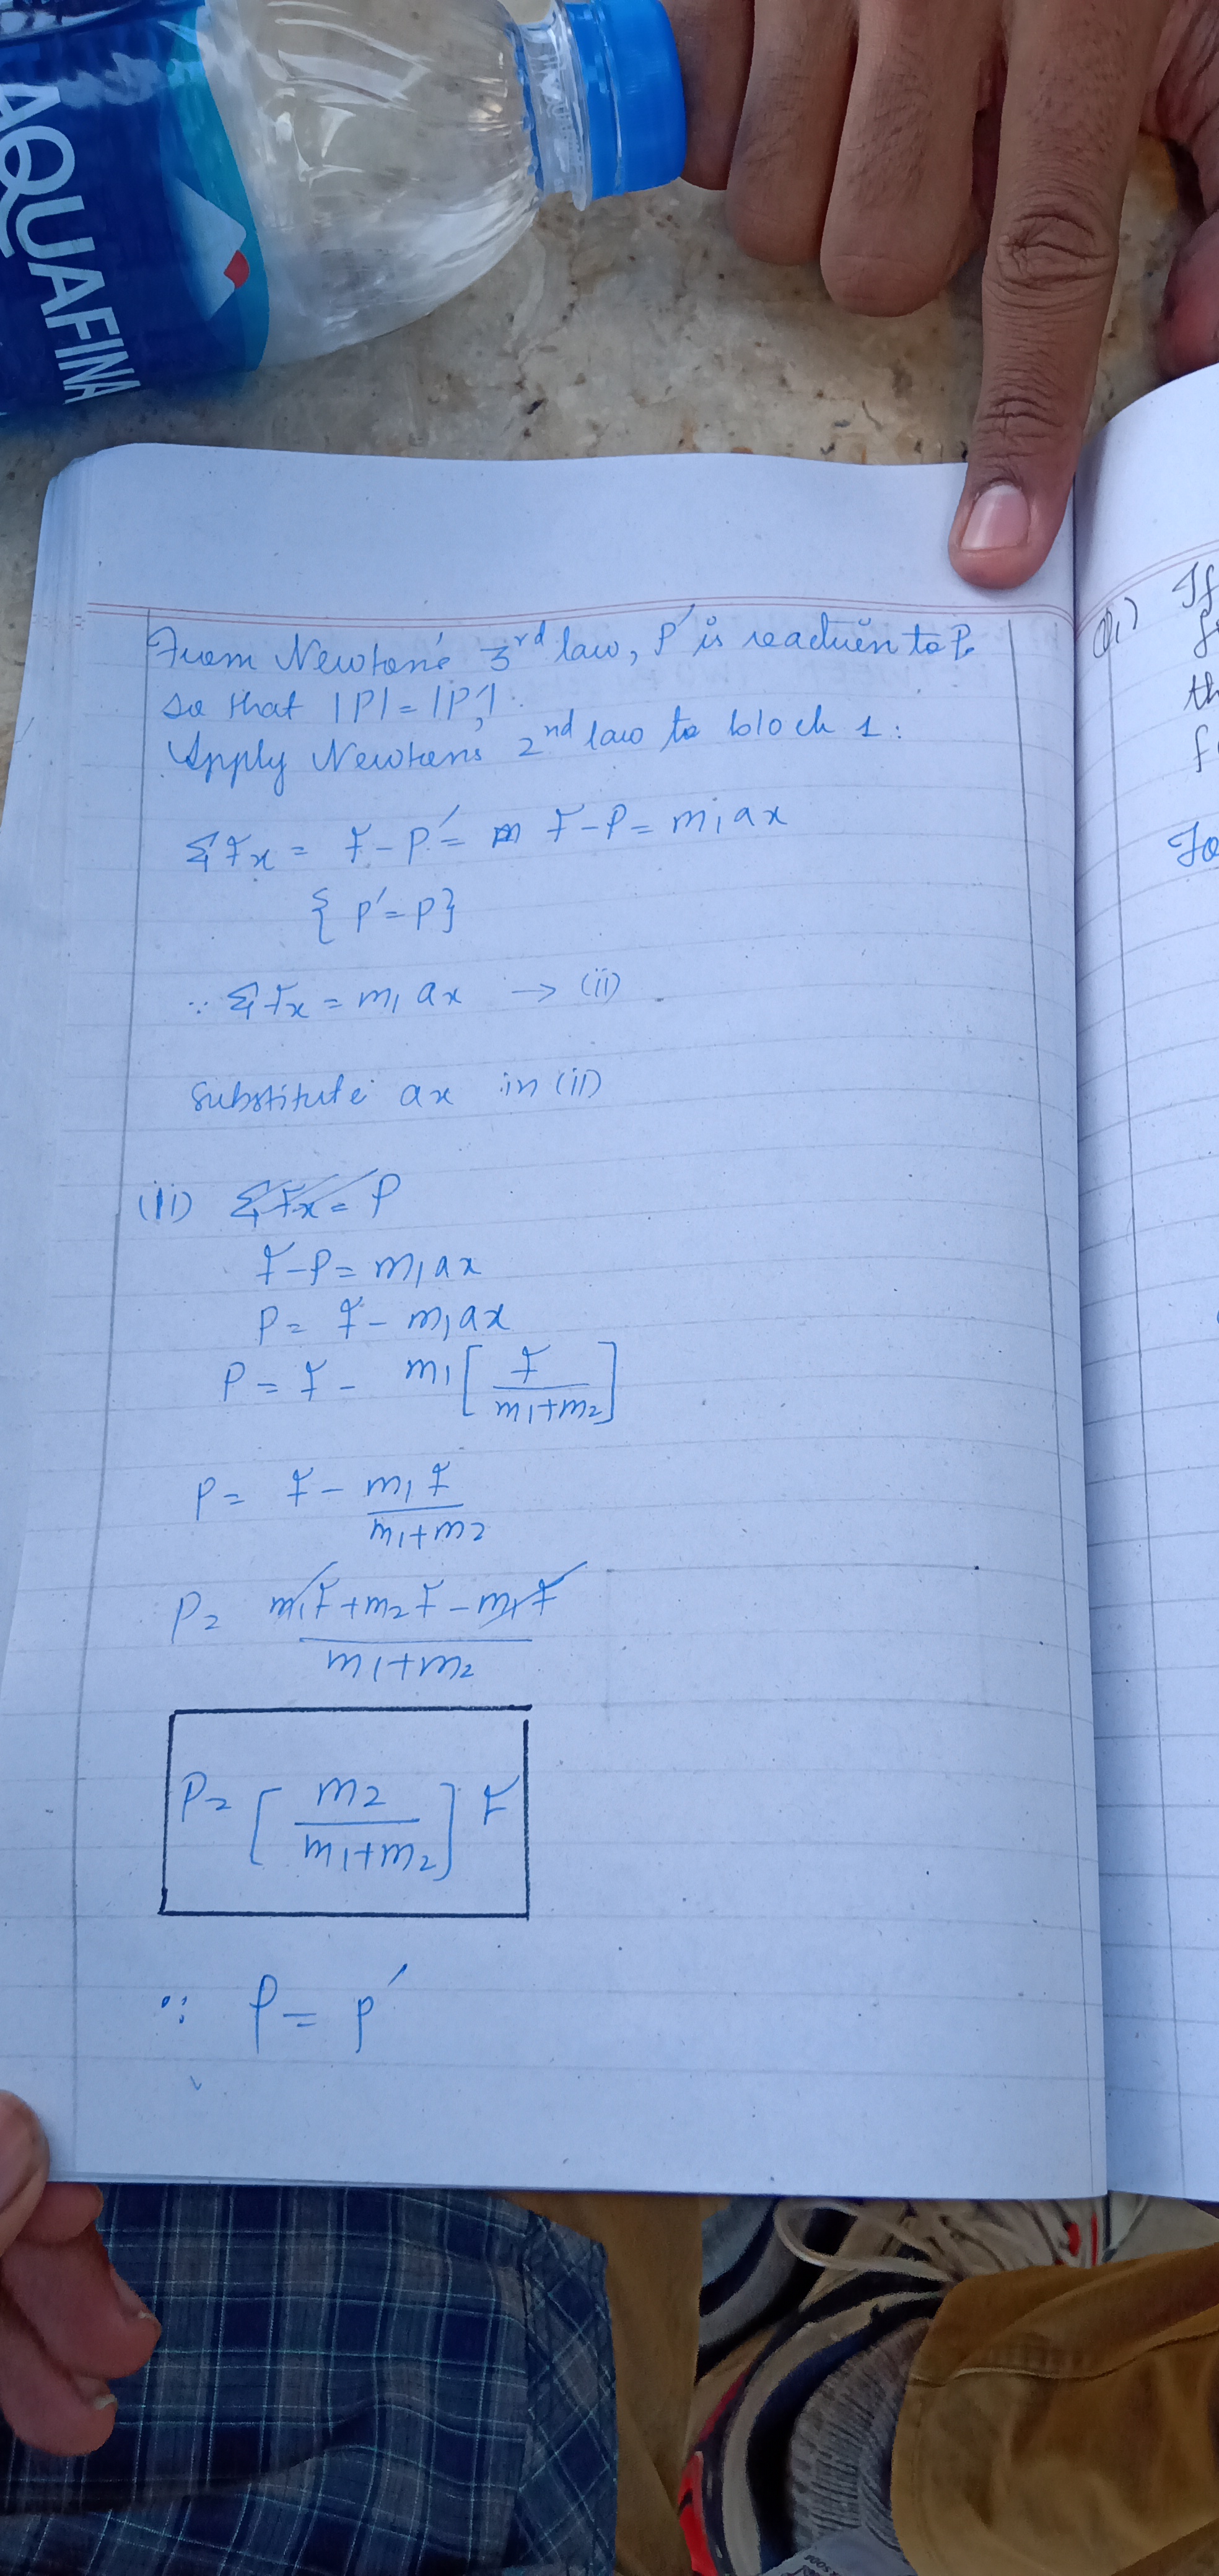 AQUAFINA
From Newton's 3rd law, P' is reaction to P.
so that |P| = |P'|.
Apply Newton's 2nd law to block 1:
ΣFx = F - P' = m F - P = m1ax
{ P' = P}
∵ ΣFx = m1 ax → (ii)
Substitute ax in (ii)
(ii) ΣFx = P
F - P = m1ax
P = F - m1ax
P = F - m1[F/(m1+m2)]
P = F - m1F/(m1+m2)
P = (m1F + m2F - m1F)/(m1+m2)
P = [m2/(m1+m2)] F
∵ P = P'
Q1) If
th
Fo